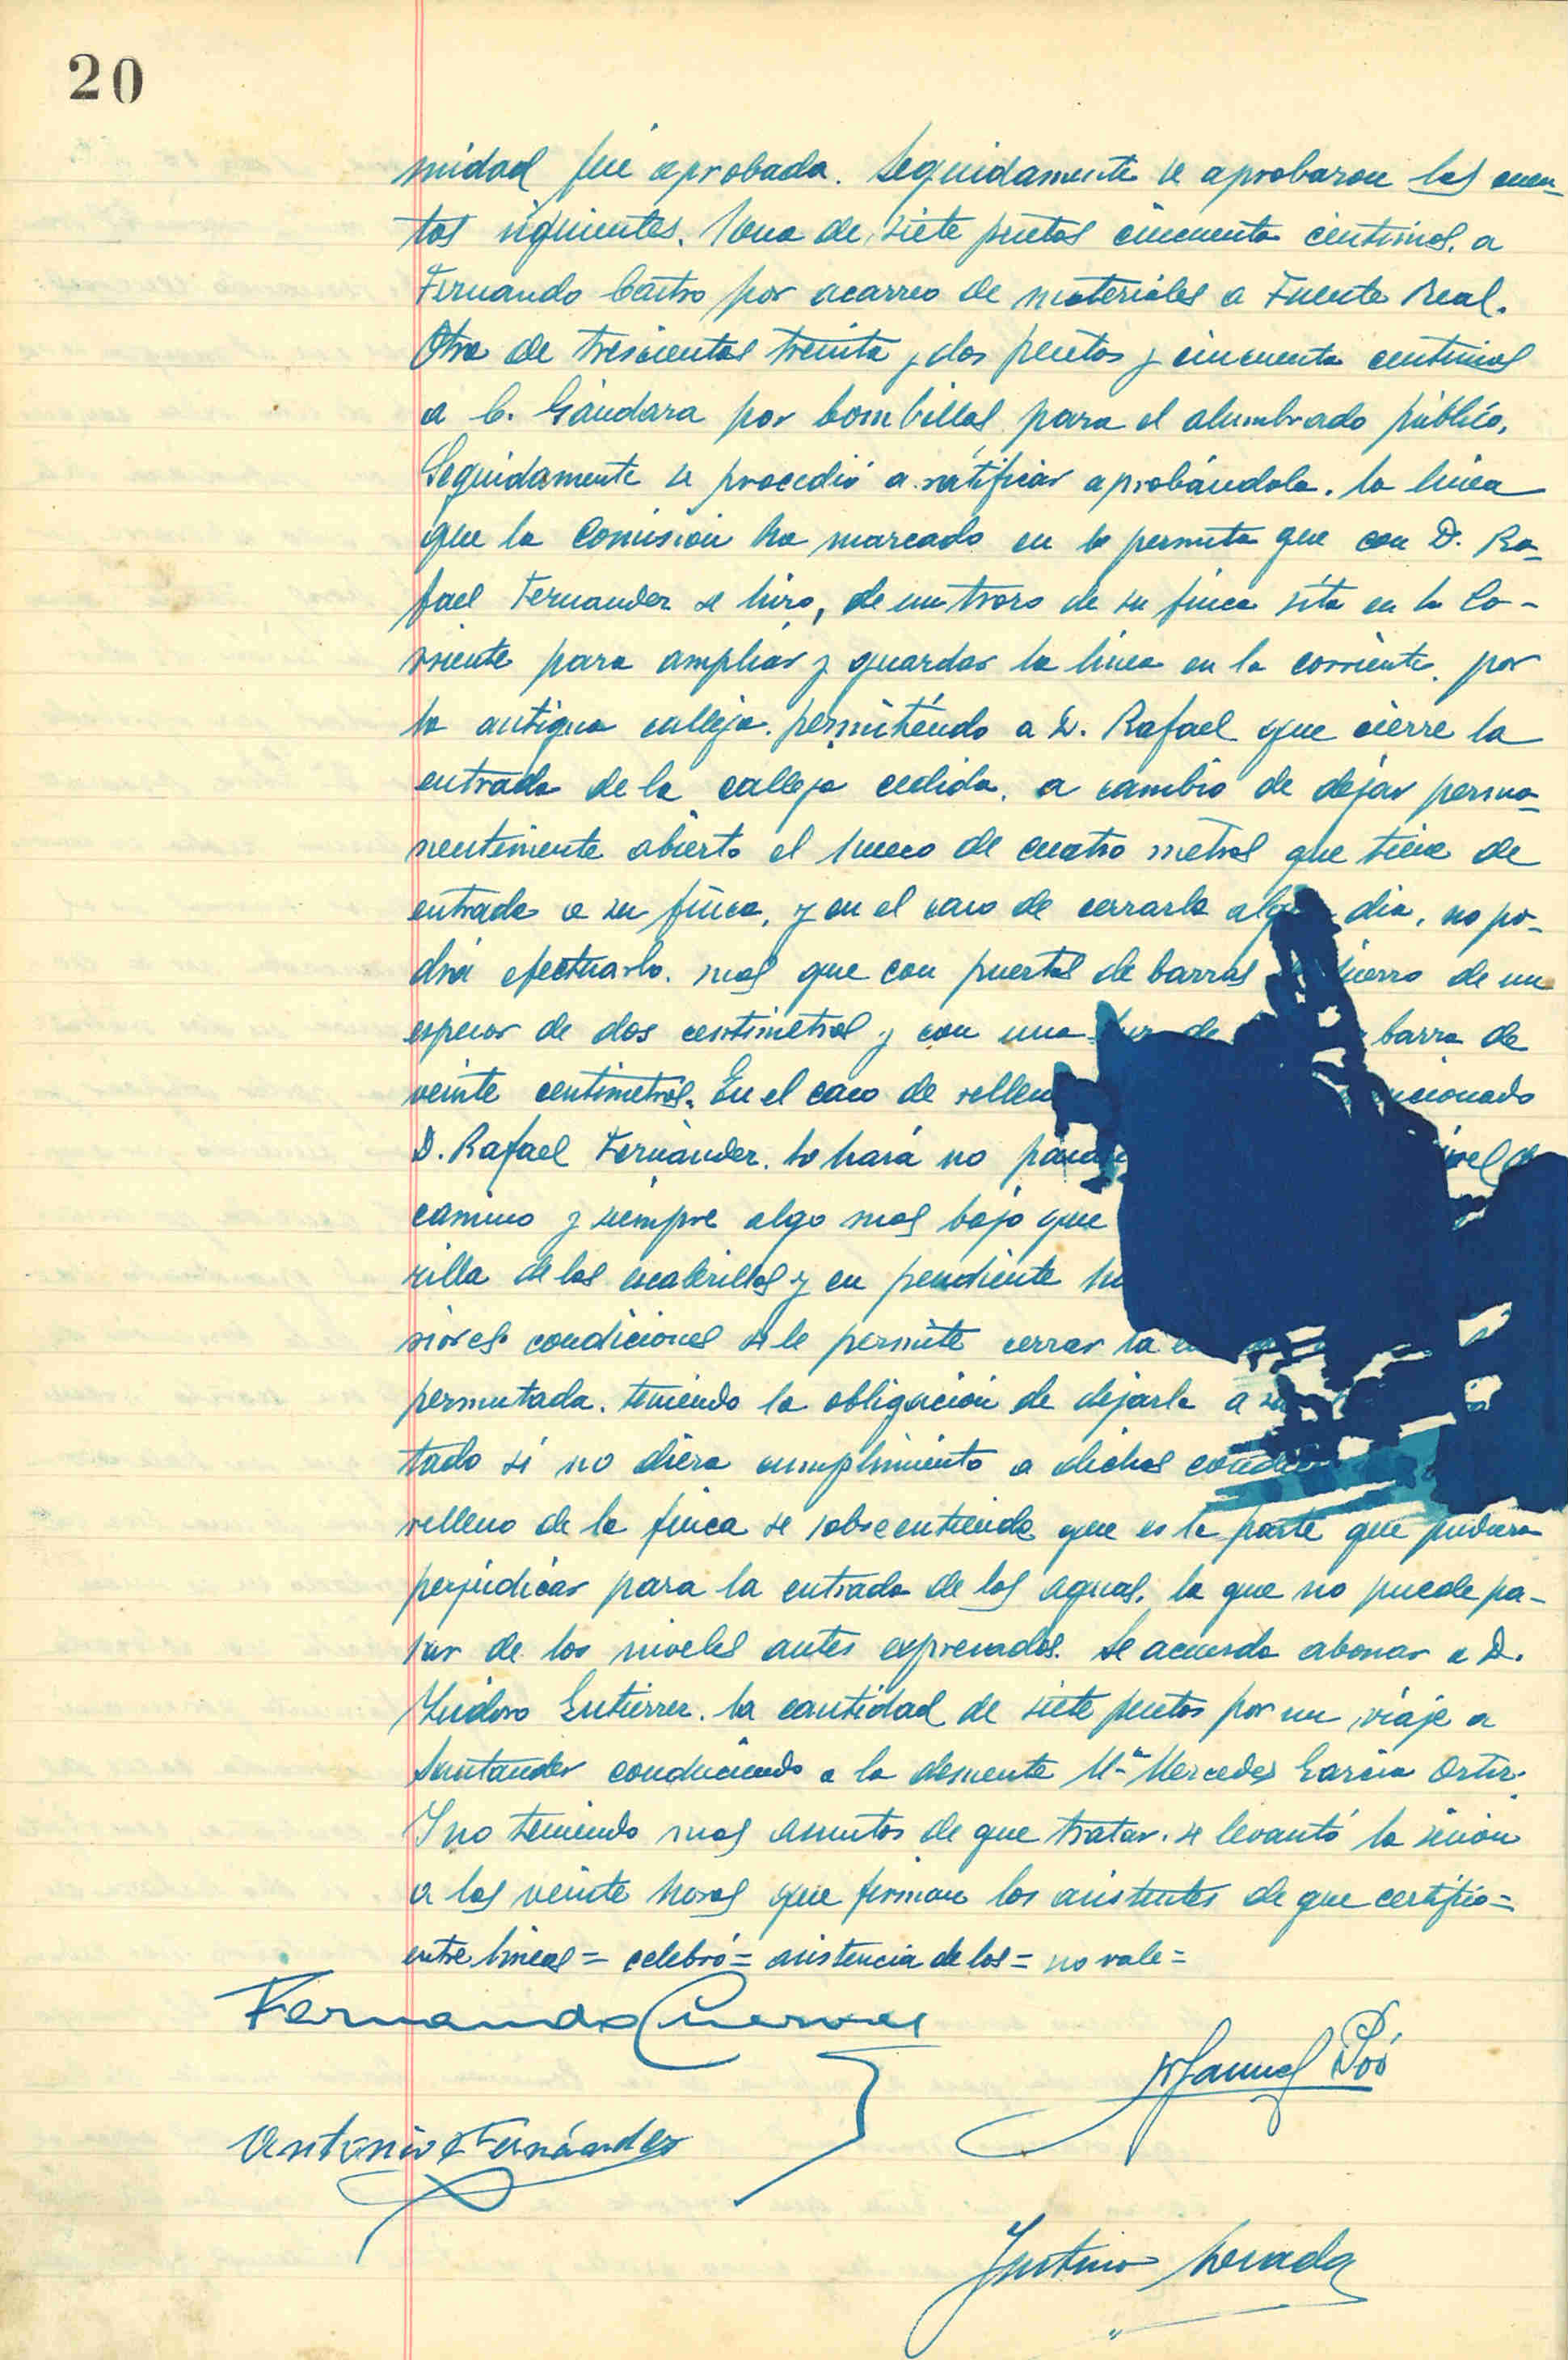 20
midad fué aprobada. Seguidamente se aprobaron las cuen-
tas siguientes. Una de siete pesetas cincuenta centimos. a
Fernando Castro por acarreo de materiales a Fuente Real.
Otra de trescientas treinta y dos pesetas y cincuenta centimos
a C. Gándara por bombillas para el alumbrado público.
Seguidamente se procedió a ratificar aprobándola. la linea
que la Comisión ha marcado en la permuta que con D. Ra-
fael Fernandez se hizo, de un trozo de su finca sita en la Co-
rriente para ampliar y guardar la linea en la corriente. por
la antigua calleja. permitiéndo a D. Rafael que cierre la
entrada de la calleja cedida. a cambio de dejar perma-
nentemente abierto el hueco de cuatro metros que tiene de
entrada a su finca, y en el caso de cerrarla algun dia, no po-
drá efectuarlo. mas que con puertas de barras hierro de un
espesor de dos centimetros y con una luz de barra de
veinte centimetros. En el caso de rellen ncionado
D. Rafael Fernández. lo hará no nivel
camino y siempre algo mas bajo que
rilla de las escalerillas y en pendiente ha
riores condiciones se le permite cerrar la
permutada. teniendo la obligación de dejarla a su
tado si no diera cumplimiento a dichas
relleno de la finca se sobreentiende que es la parte que pudiera
perjudicar para la entrada de las aguas. la que no puede pa-
sar de los niveles antes expresados. Se acuerda abonar a D.
Ysidoro Gutierrez. la cantidad de siete pesetas por un viaje a
Santander conduciendo a la demente Mª Mercedes Garcia Ortiz.
Y no teniendo mas asuntos de que tratar. se levantó la sesión
a las veinte horas que firman los asistentes de que certifico=
entre lineas = celebró = asistencia de los = no vale =
Fernando Cuevas
Manuel Poó
Antonio Fernández
Justino Losada